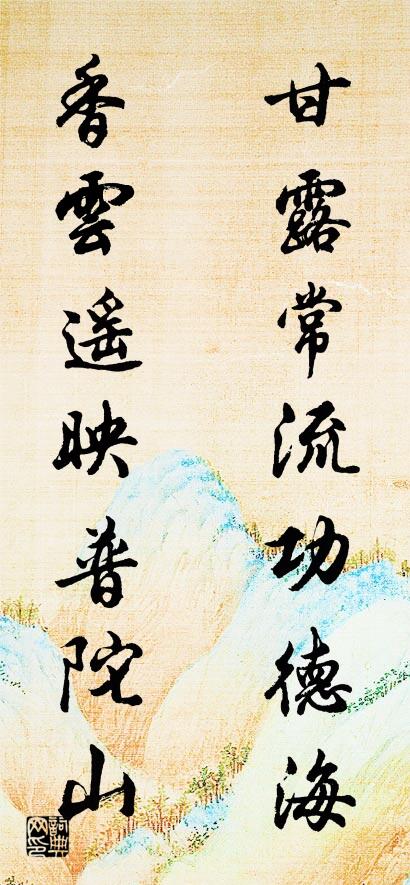 甘露常流功德海
香雲遥映普陀山